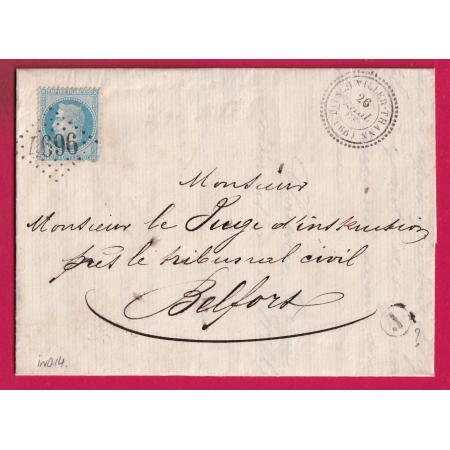 1696
26
(66)
Monsieur
Monsieur le Juge d'instruction
près le tribunal civil
Belfort
J
?
IND 14.